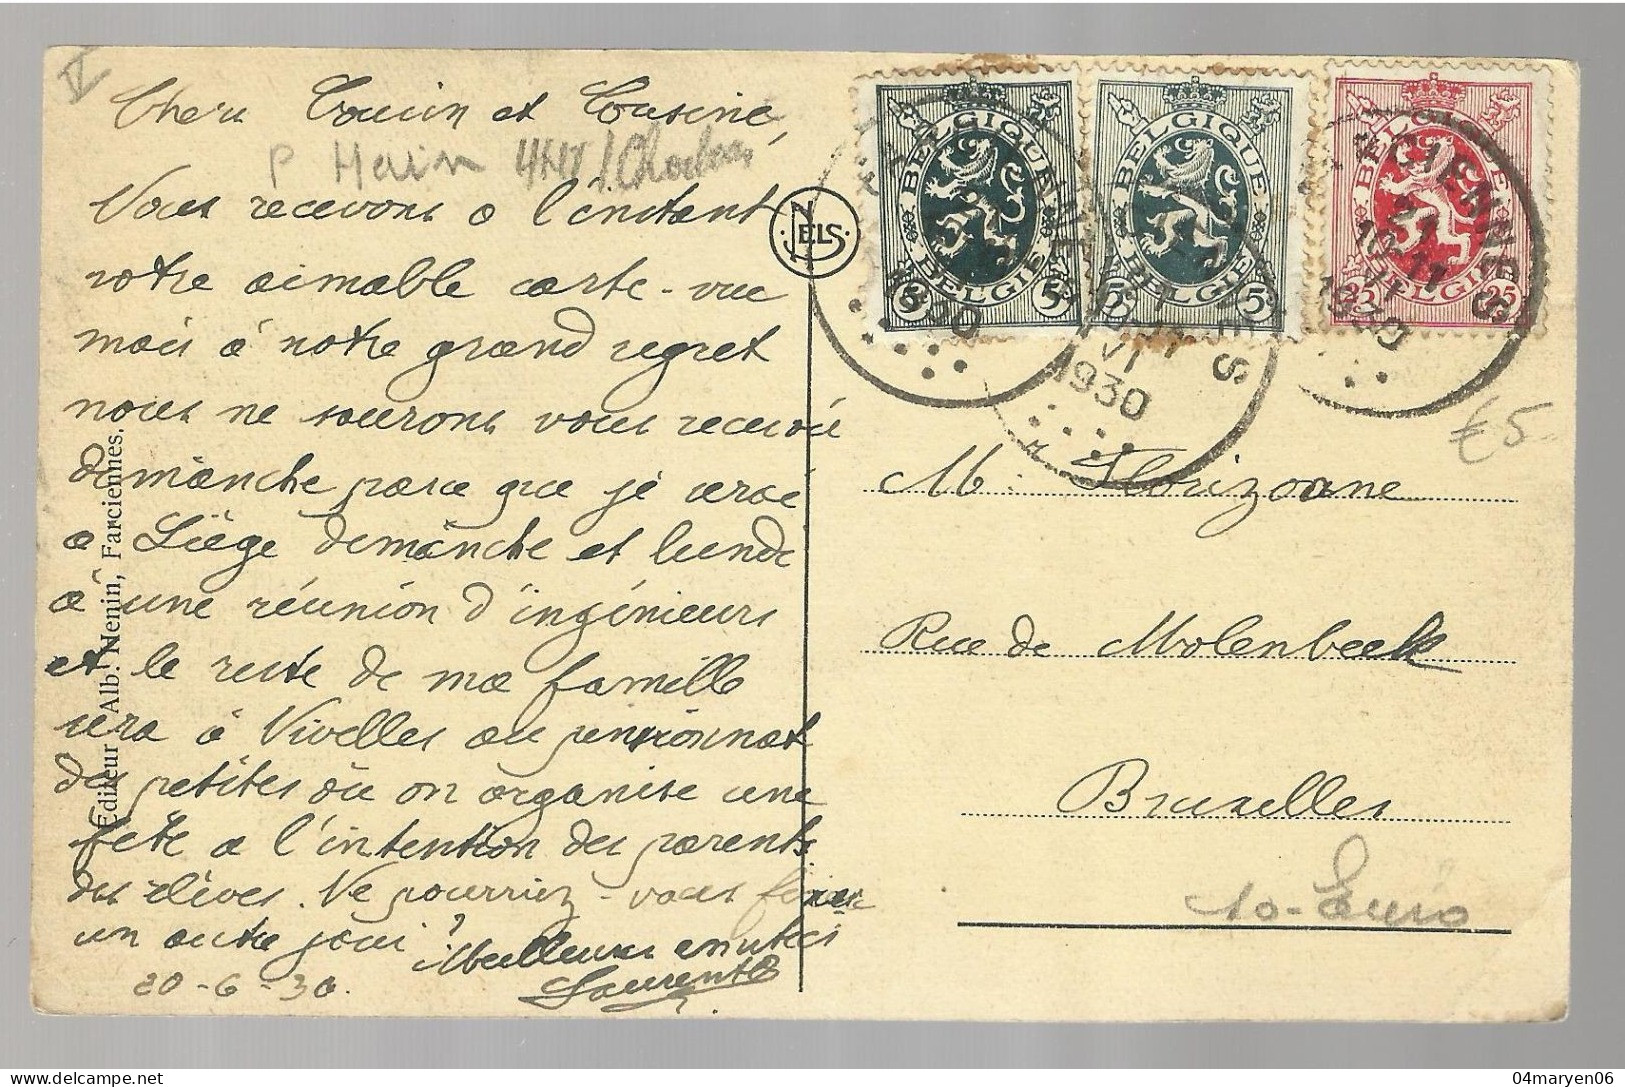 Chers Cousin et Cousine,
P Hain
Vous recevons a l'instant
votre aimable carte-vue
mais à notre grand regret
nous ne saurons vous recevoir
dimanche parce que je serai
a Liège dimanche et lundi
à une réunion d'ingénieurs
et le reste de ma famille
sera à Nivelles au pensionnat
des petites où on organise une
fête a l'intention des parents
des élèves. Ne pourriez-vous fixer
un autre jour?
Meilleures amitiés
Laurent
20-6-30.
Editeur Alb. Nenin, Farciennes.
NELS
BELGIQUE
5 BELGIE 5
BELGIQUE
5 BELGIE 5
BELGIQUE
25 BELGIE 25
FARCIENNES
21
10-11
VI
1930
VI
1930
1930
€5-
M Horizonne
Rue de Molenbeek
Bruxelles
10-Euro
04maryen06